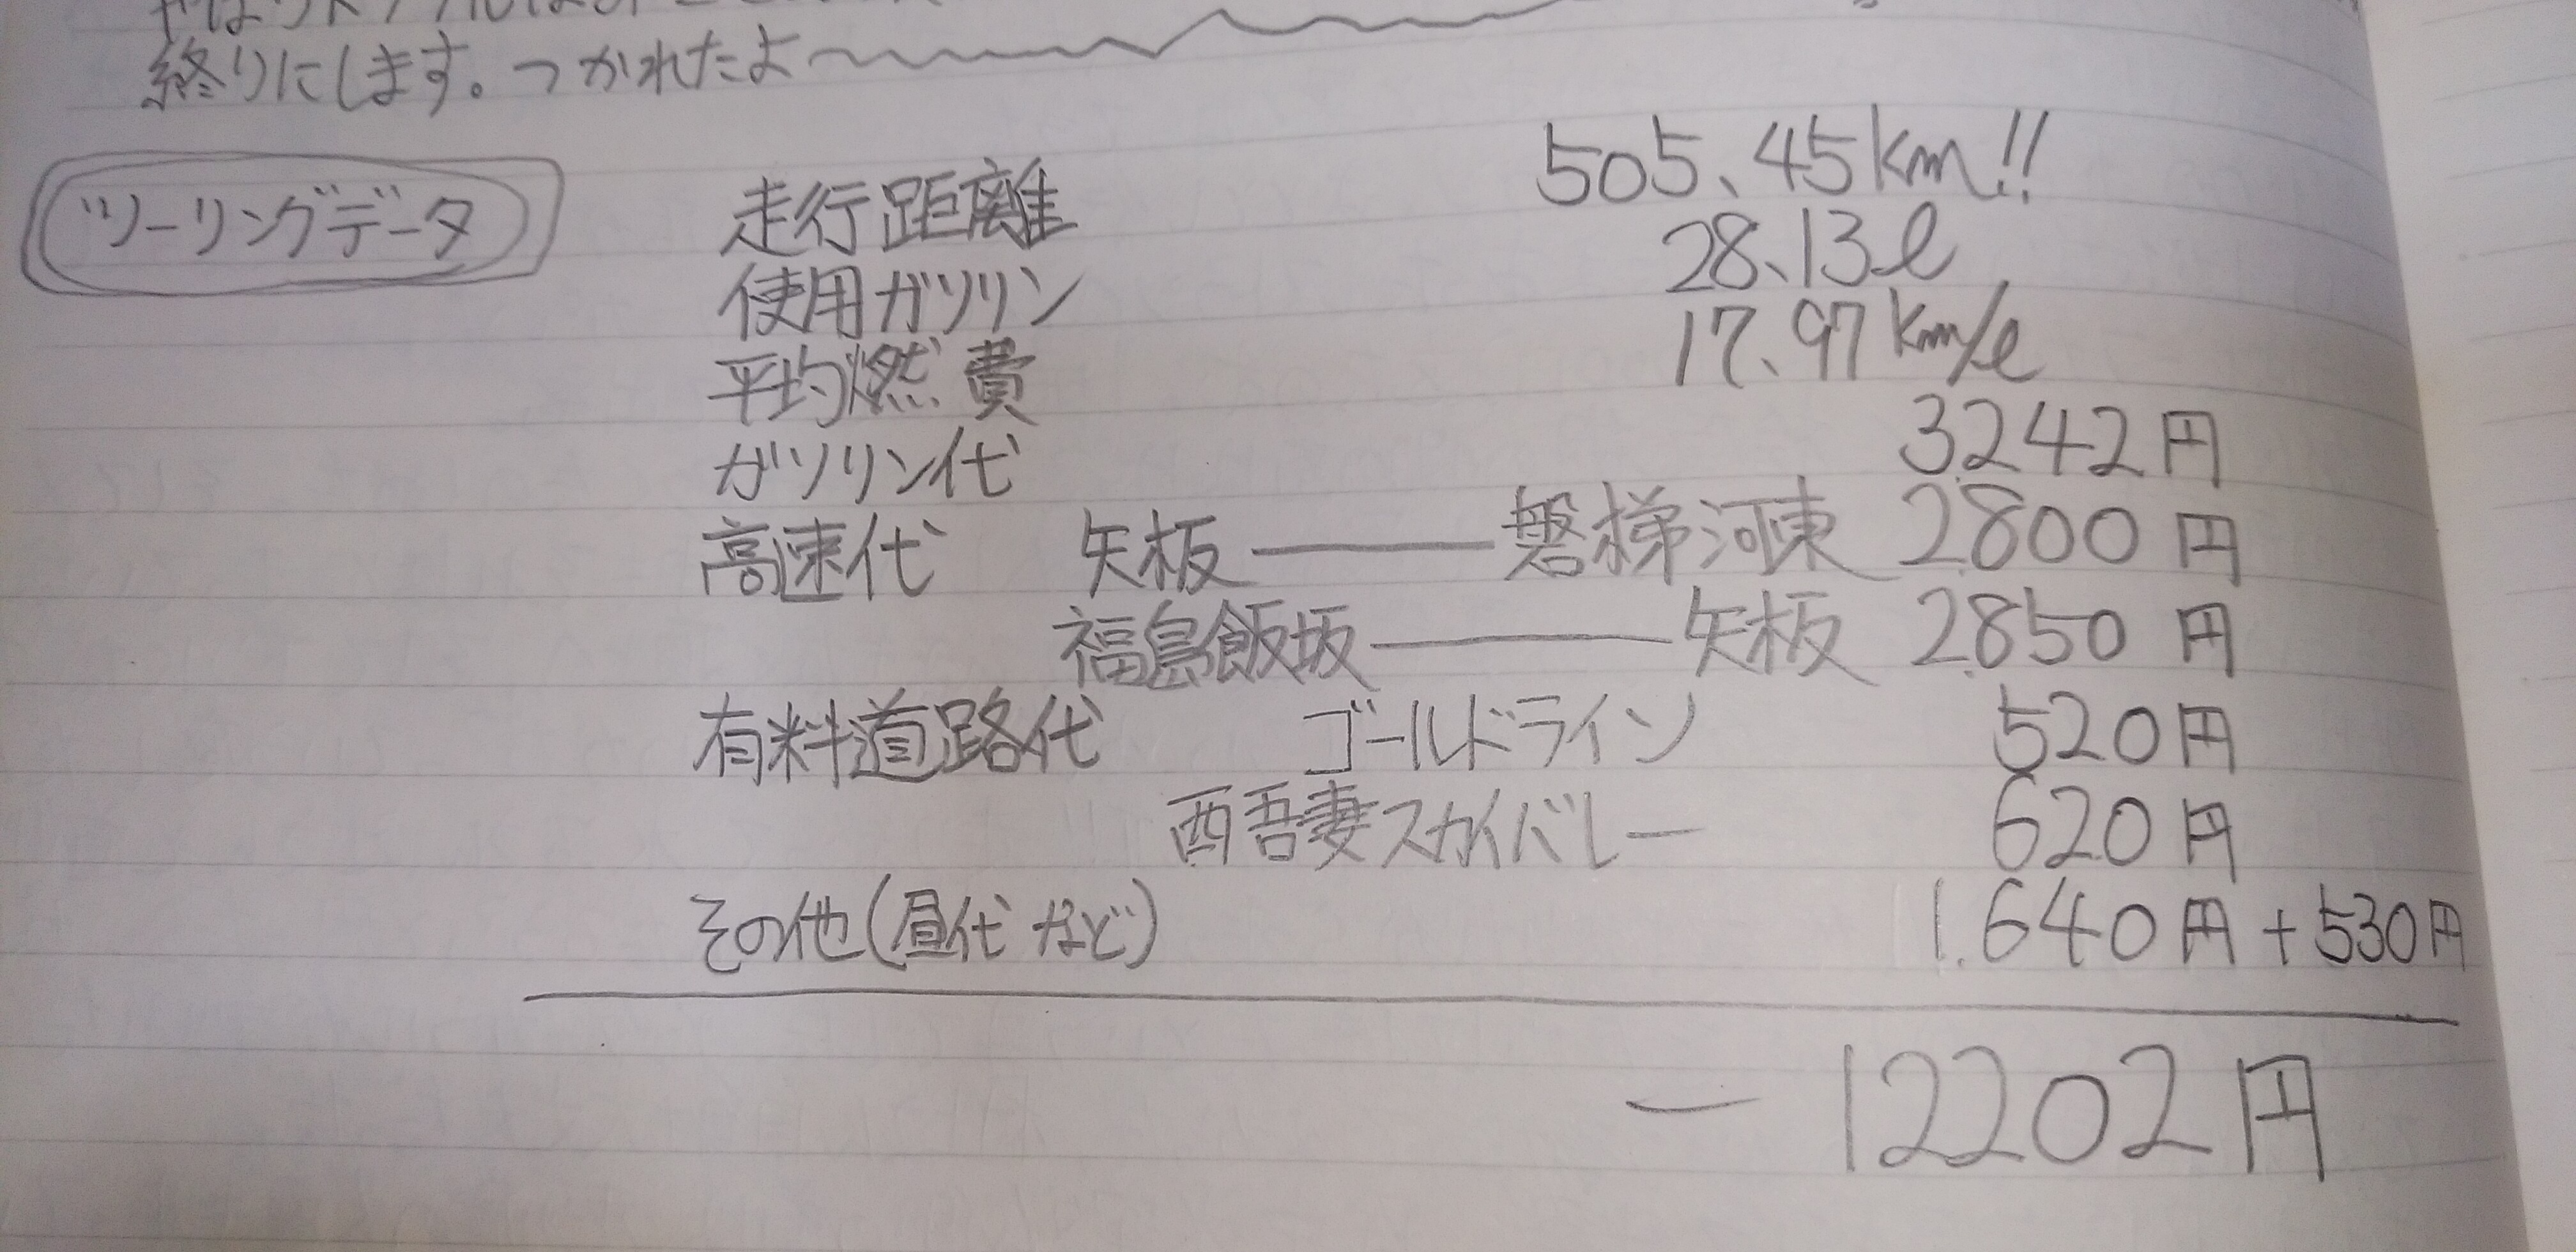 終りにします。つかれたよ〜
ツーリングデータ
走行距離 505.45km!!
使用ガソリン 28.13ℓ
平均燃費 17.97km/ℓ
ガソリン代 3242円
高速代 矢板―――磐梯河東 2800円
福島飯坂―――矢板 2850円
有料道路代 ゴールドライン 520円
西吾妻スカイバレー 620円
その他(昼代など) 1.640円+530円
― 12202円